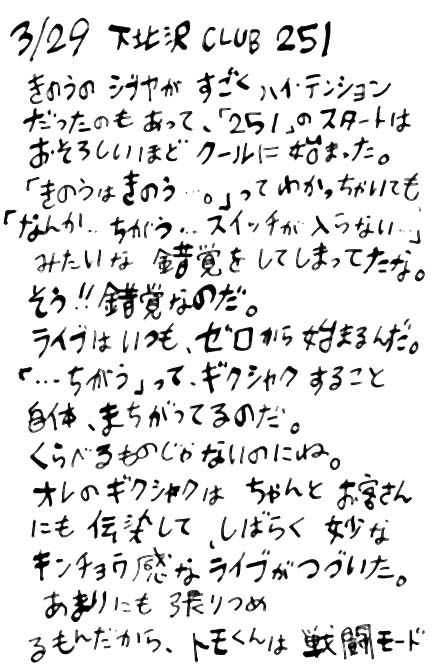 3/29 下北沢 CLUB 251
きのうの シブヤが すごく ハイ・テンション
だったのも あって、「251」の スタートは
おそろしいほど クールに 始まった。
「きのうは きのう…。」って わかっちゃいても
「なんか… ちがう… スイッチが 入らない…」
みたいな 錯覚を してしまってたな。
そう!! 錯覚なのだ。
ライブは いつも、ゼロから 始まるんだ。
「…ちがう」って、ギクシャク すること
自体、まちがってるのだ。
くらべるものじゃないのにね。
オレの ギクシャクは ちゃんと お客さん
にも 伝染して、しばらく 妙な
キンチョウ感な ライブが つづいた。
あまりにも 張りつめ
るもんだから、トモくんは 戦闘モード